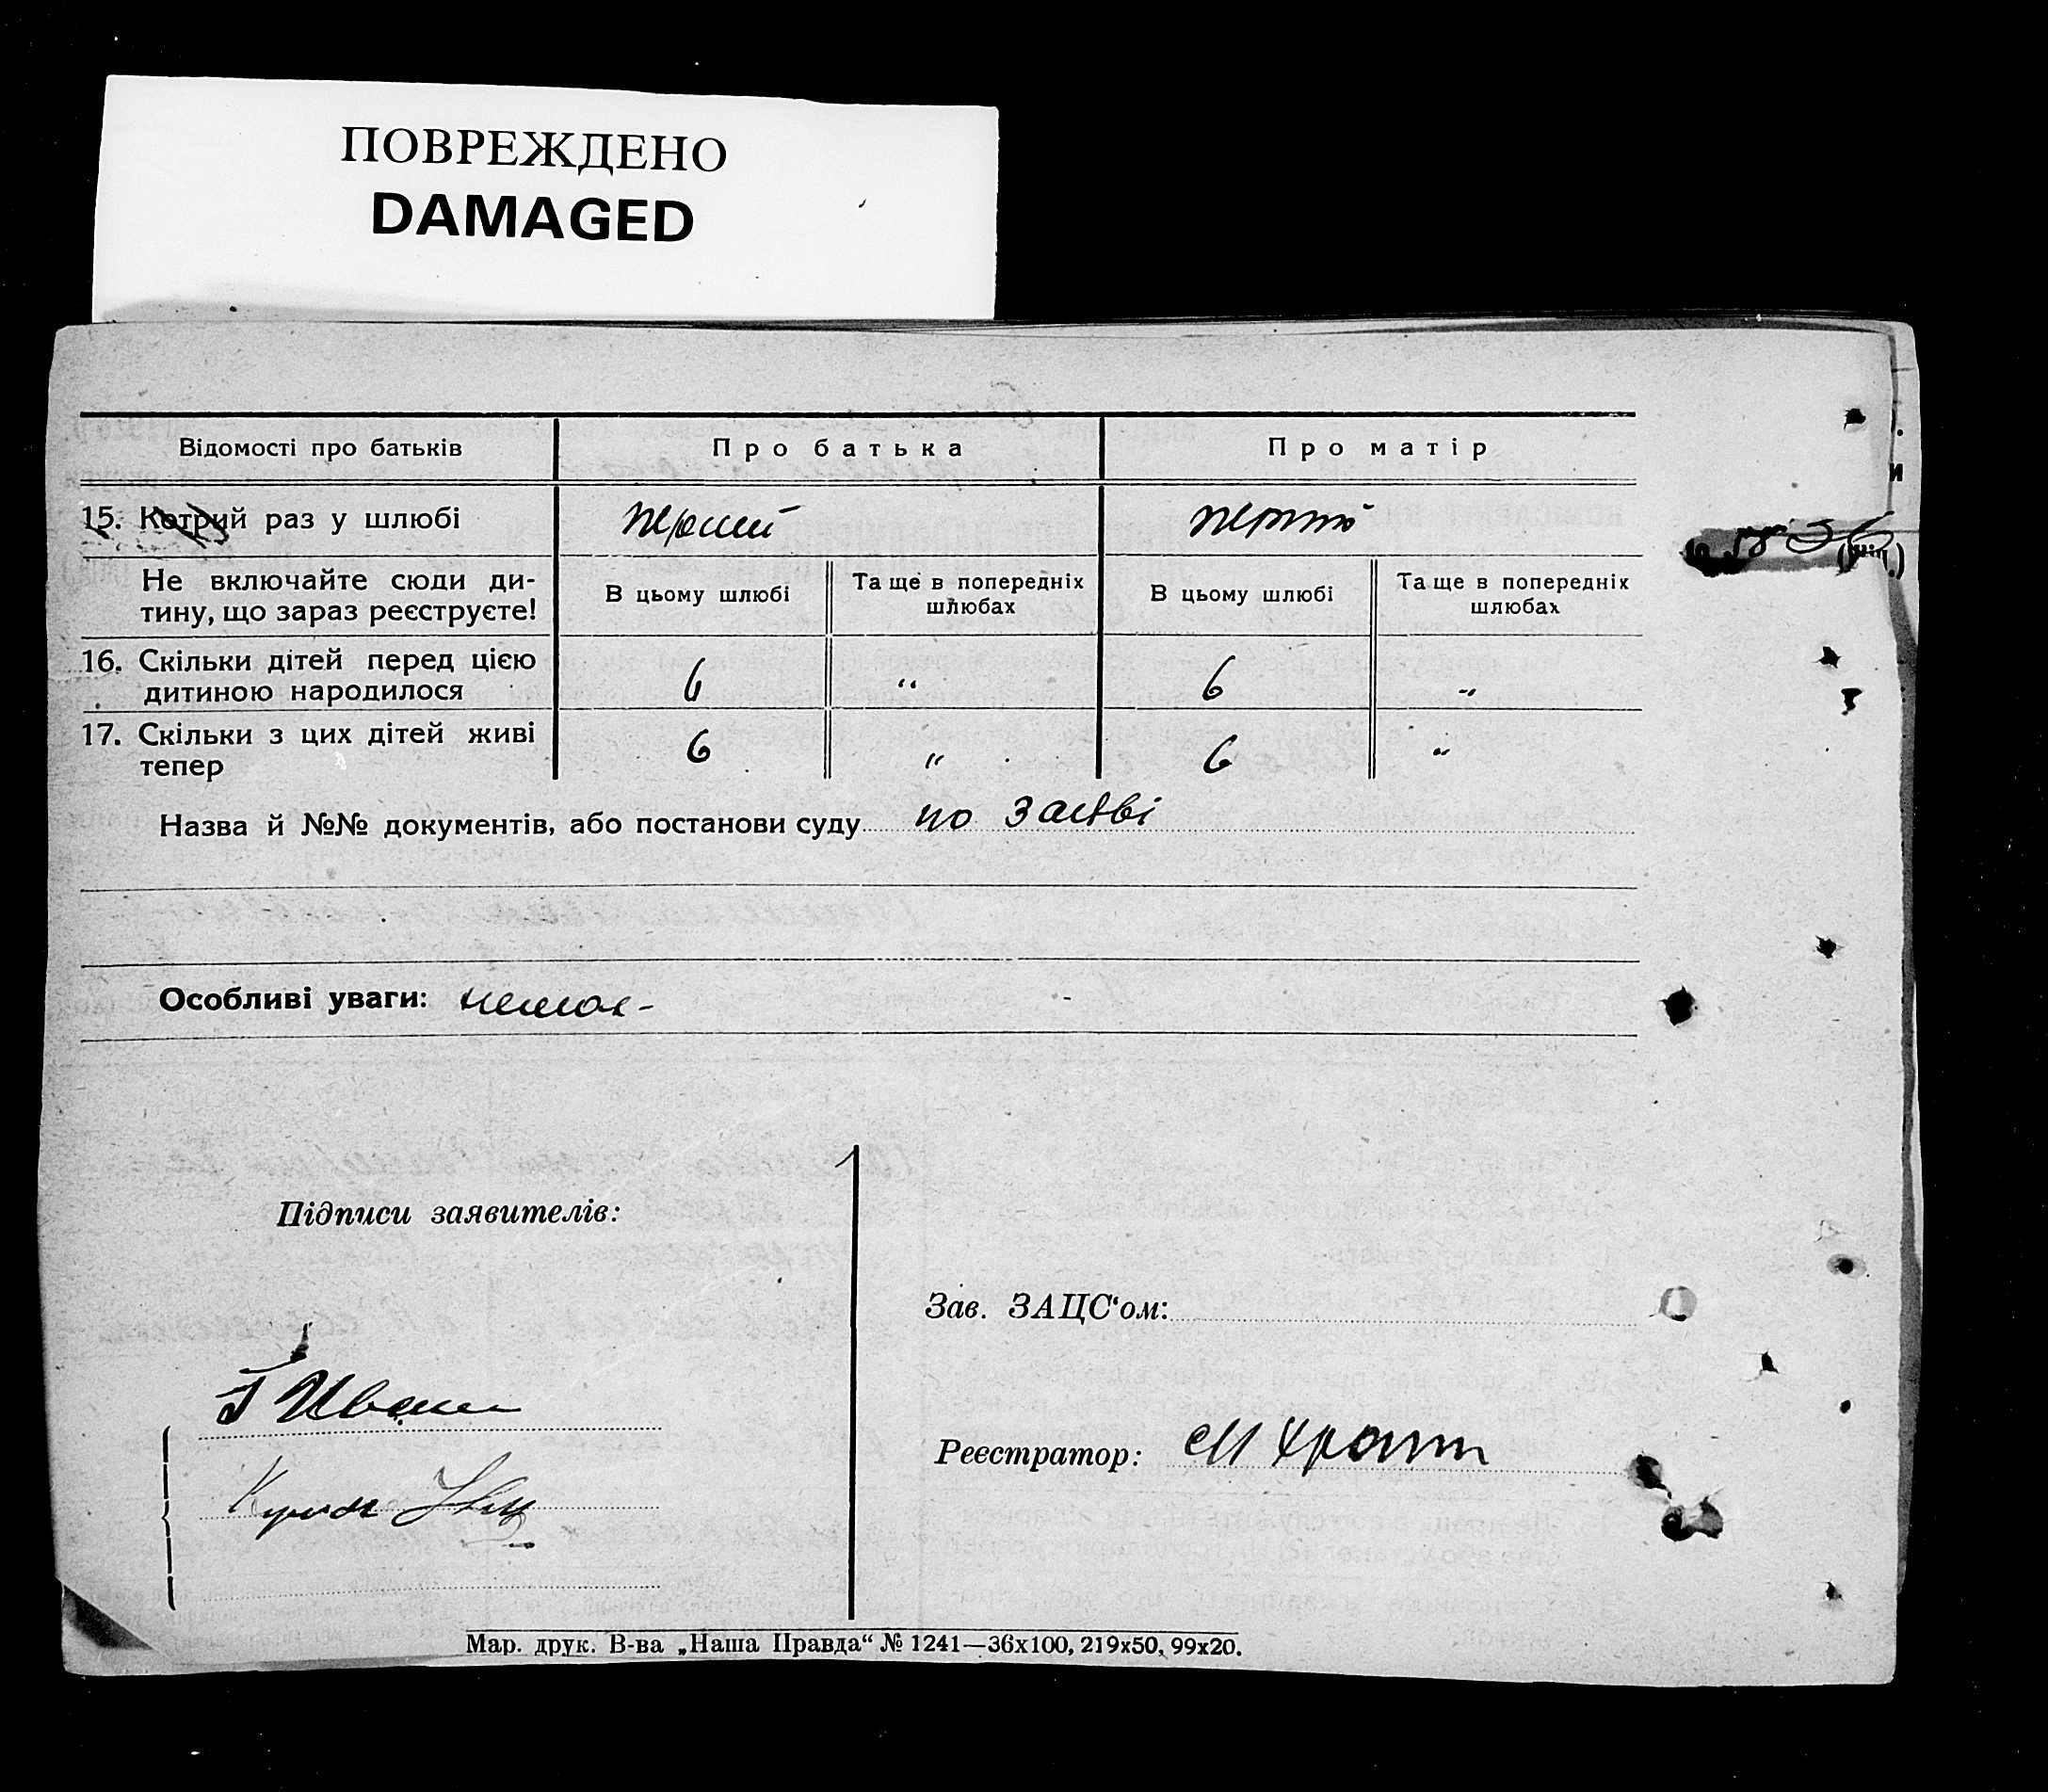 ПОВРЕЖДЕНО
DAMAGED
Відомості про батьків
Про батька
Про матір
15. Котрий раз у шлюбі
перший
Не включайте сюди ди-
тину, що зараз реєструєте!
В цьому шлюбі
Та ще в попередніх
шлюбах
В цьому шлюбі
Та ще в попередніх
шлюбах
16. Скільки дітей перед цією
дитиною народилося
6
"
6
"
17. Скільки з цих дітей живі
тепер
6
"
6
"
Назва й №№ документів, або постанови суду по заяві
Особливі уваги: немає -
Підписи заявителів:
Зав. ЗАЦС'ом:
Реєстратор:
Мар. друк. В-ва „Наша Правда“ № 1241—36х100, 219х50, 99х20.